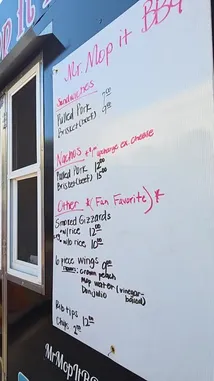 Mr. Mop it BBQ
Sandwiches
Pulled Pork 7.00
Brisket (beef) 9.00
Nachos + upcharge ex cheese
Pulled Pork 12.00
Brisket (beef) 15.00
Other *(Fan Favorite)*
Smoked Gizzards
w/rice 12.00
w/o rice 10.00
6 piece wings 9.00
cream peach
Mop water (vinegar-based)
Don Julio
Rib tips 12.00
Chips 2.00
MrMopItBBQ